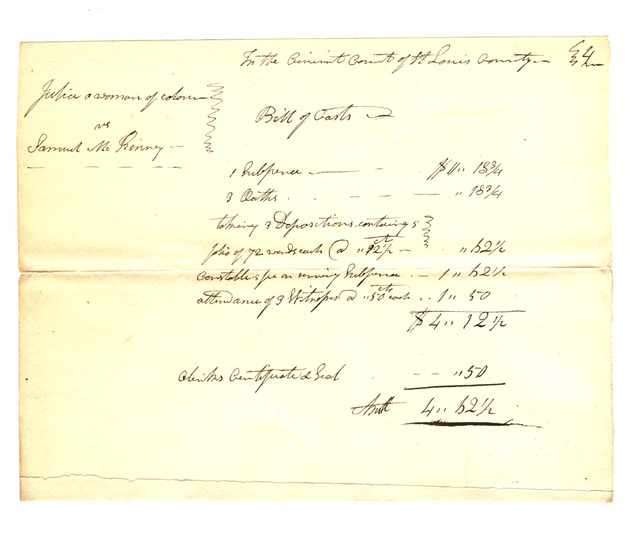 In the Circuit Court of St Louis County 24
Julia a woman of colour
vs
Samuel McKinney
Bill of Costs
1 Subpoena $0" 18 3/4
3 Oaths " 18 3/4
taking 3 Depositions containing 5
folio of 72 words each @ " 12 1/2 cts " 62 1/2
Constables fee on serving Subpoena 1 " 62 1/2
attendance of 3 Witnesses @ " 50 cts each 1 " 50
$4 " 12 1/2
Clerks Certificate & Seal " 50
Amt 4 " 62 1/2